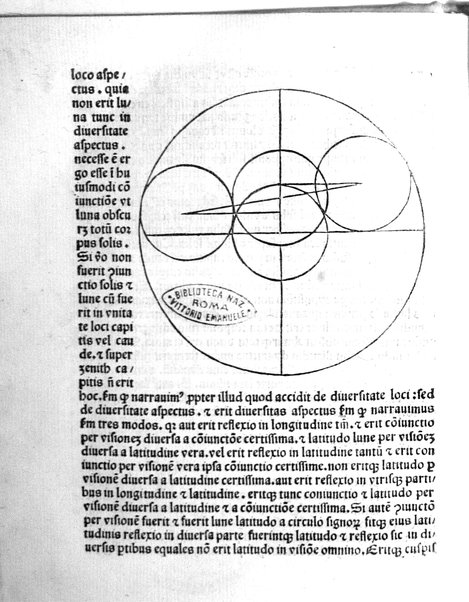 loco aspe/
ctus . quia
non erit lu/
na tunc in
diuersitate
aspectus .
necesse ē er
go esse ī hu
iusmodi cō
iunctiōe vt
luna obscu
rꝫ totū cor
pus solis .
Si v̄o non
fuerit ꝯiun
ctio solis ⁊
lune cū fue
rit in vnita
te loci capi
tis vel cau
de. ⁊ super
zenith ca/
pitis n̄ erit
hoc. ẜm ꝙ narrauimꝰ. ꝓpter illud quod accidit de diuersitate loci : sed
de diuersitate aspectus . ⁊ erit diuersitas aspectus ẜm ꝙ narrauimus
ẜm tres modos . q: aut erit reflexio in longitudine tm̄. ⁊ erit cōiunctio
per visionez diuersa a cōiunctōe certissima. ⁊ latitudo lune per visiōez
diuersa a latitudine vera. vel erit reflexio in latitudine tantū ⁊ erit con
iunctio per visionē vera ipsa cōiunctio certissime. non eritqꝫ latitudo ꝑ
visionē diuersa a latitudine certissima. aut erit reflexio in vtrisqꝫ parti/
bus in longitudine ⁊ latitudine . eritqꝫ tunc coniunctio ⁊ latitudo per
visionē diuersa a latitudine ⁊ a cōiunctiōe certissima. Si autē ꝯiunctō
per visionē fuerit ⁊ fuerit lune latitudo a circulo signoꝝ sitqꝫ eius lati/
tudinis reflexio in diuersa parte fuerintqꝫ latitudo ⁊ reflexio sic in di/
uersis ptibus equales nō erit latitudo in visiōe omnino. Eritqꝫ cuspis
BIBLIOTECA NAZ
ROMA
VITTORIO EMANUELE